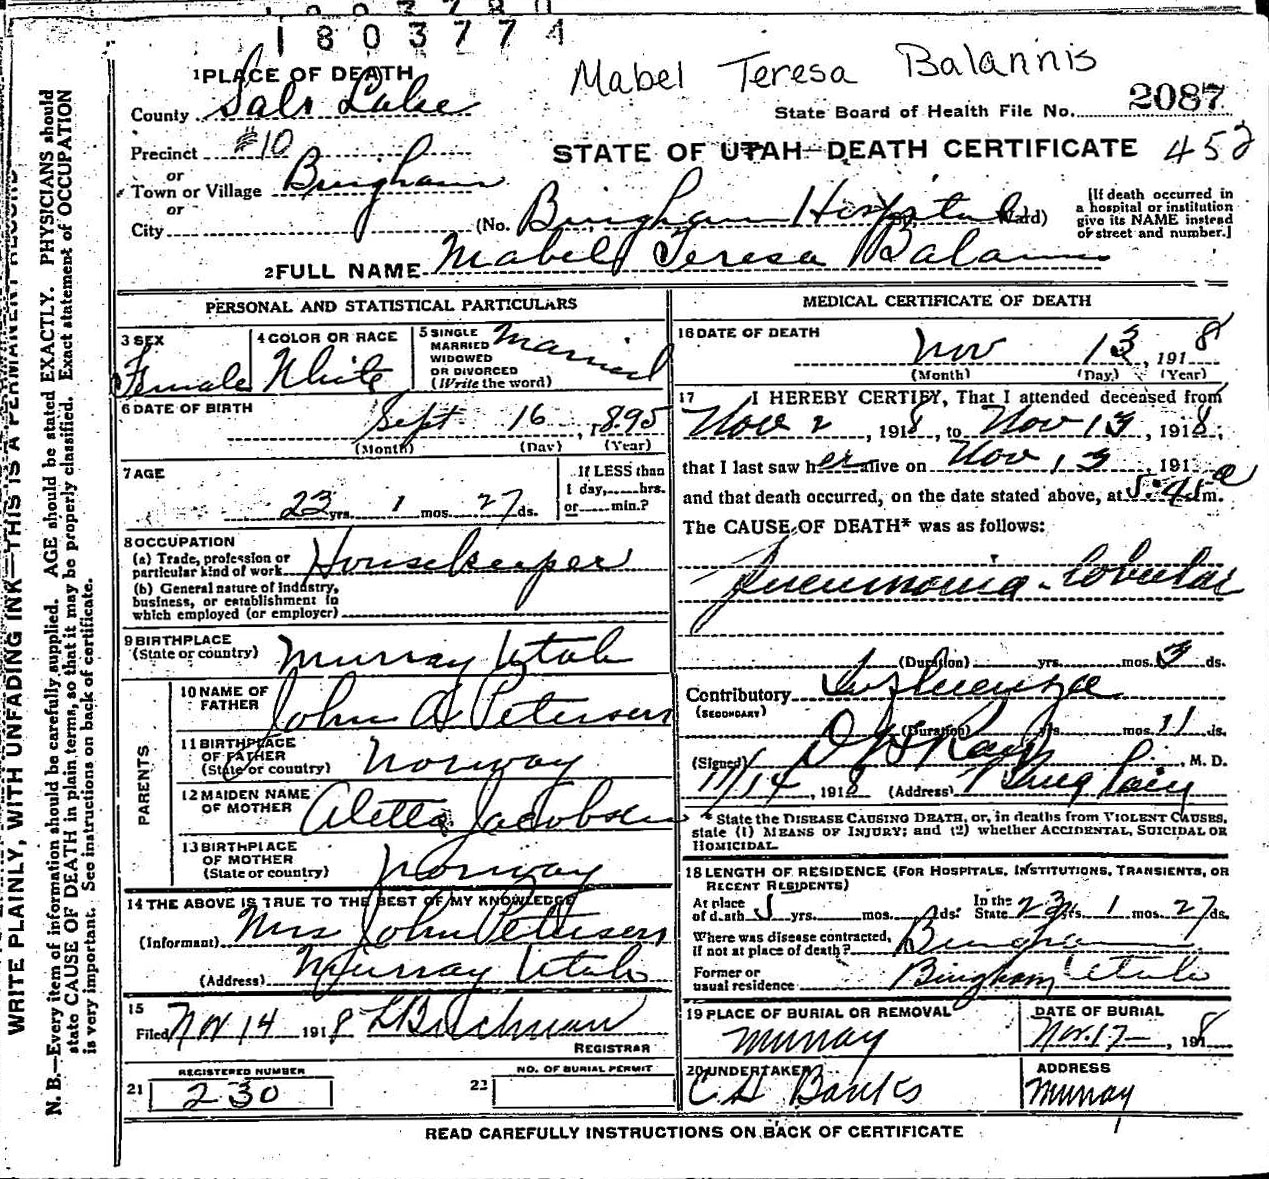 1803774
Mabel Teresa Balannis
1 PLACE OF DEATH
County Salt Lake
State Board of Health File No. 2087
Precinct #10
STATE OF UTAH—DEATH CERTIFICATE 452
or
Town or Village Bingham
or
City (No. Bingham Hospital St. Ward)
[If death occurred in
a hospital or institution
give its NAME instead
of street and number.]
2 FULL NAME Mabel Teresa
PERSONAL AND STATISTICAL PARTICULARS
3 SEX
Female
4 COLOR OR RACE
White
5 SINGLE
MARRIED
WIDOWED
OR DIVORCED
(Write the word)
Married
6 DATE OF BIRTH
Sept 16, 1895
(Month) (Day) (Year)
7 AGE
23 yrs. 1 mos. 27 ds.
If LESS than
1 day,......hrs.
or......min.?
8 OCCUPATION
(a) Trade, profession or
particular kind of work Housekeeper
(b) General nature of industry,
business, or establishment in
which employed (or employer)
9 BIRTHPLACE
(State or country) Murray Utah
PARENTS
10 NAME OF
FATHER John A Petersen
11 BIRTHPLACE
OF FATHER
(State or country) Norway
12 MAIDEN NAME
OF MOTHER Aletta Jacobsen
13 BIRTHPLACE
OF MOTHER
(State or country) Norway
14 THE ABOVE IS TRUE TO THE BEST OF MY KNOWLEDGE
(Informant) Mrs John Petersen
(Address) Murray Utah
15
Filed Nov 14 1918
REGISTRAR
REGISTERED NUMBER
21 230
NO. OF BURIAL PERMIT
22
MEDICAL CERTIFICATE OF DEATH
16 DATE OF DEATH
Nov 13, 1918
(Month) (Day) (Year)
17 I HEREBY CERTIFY, That I attended deceased from
Nov 2, 1918, to Nov 13, 1918,
that I last saw her alive on Nov 13, 191
and that death occurred, on the date stated above, at m.
The CAUSE OF DEATH* was as follows:
Pneumonia - Lobular
(Duration) yrs. mos. 3 ds.
Contributory Influenza
(SECONDARY)
(Duration) yrs. mos. 11 ds.
(Signed) M. D.
11/14, 1918 (Address)
* State the DISEASE CAUSING DEATH, or, in deaths from VIOLENT CAUSES,
state (1) MEANS OF INJURY; and (2) whether ACCIDENTAL, SUICIDAL OR
HOMICIDAL.
18 LENGTH OF RESIDENCE (FOR HOSPITALS, INSTITUTIONS, TRANSIENTS, OR
RECENT RESIDENTS)
At place
of death yrs. mos. ds.
In the
State 23 yrs. 1 mos. 27 ds.
Where was disease contracted,
if not at place of death? Bingham
Former or
usual residence Bingham Utah
19 PLACE OF BURIAL OR REMOVAL
Murray
DATE OF BURIAL
Nov. 17, 1918
20 UNDERTAKER
Banks
ADDRESS
Murray
READ CAREFULLY INSTRUCTIONS ON BACK OF CERTIFICATE
WRITE PLAINLY, WITH UNFADING INK—THIS IS A PERMANENT RECORD
N. B.—Every item of information should be carefully supplied. AGE should be stated EXACTLY. PHYSICIANS should
state CAUSE OF DEATH in plain terms, so that it may be properly classified. Exact statement of OCCUPATION
is very important. See instructions on back of certificate.